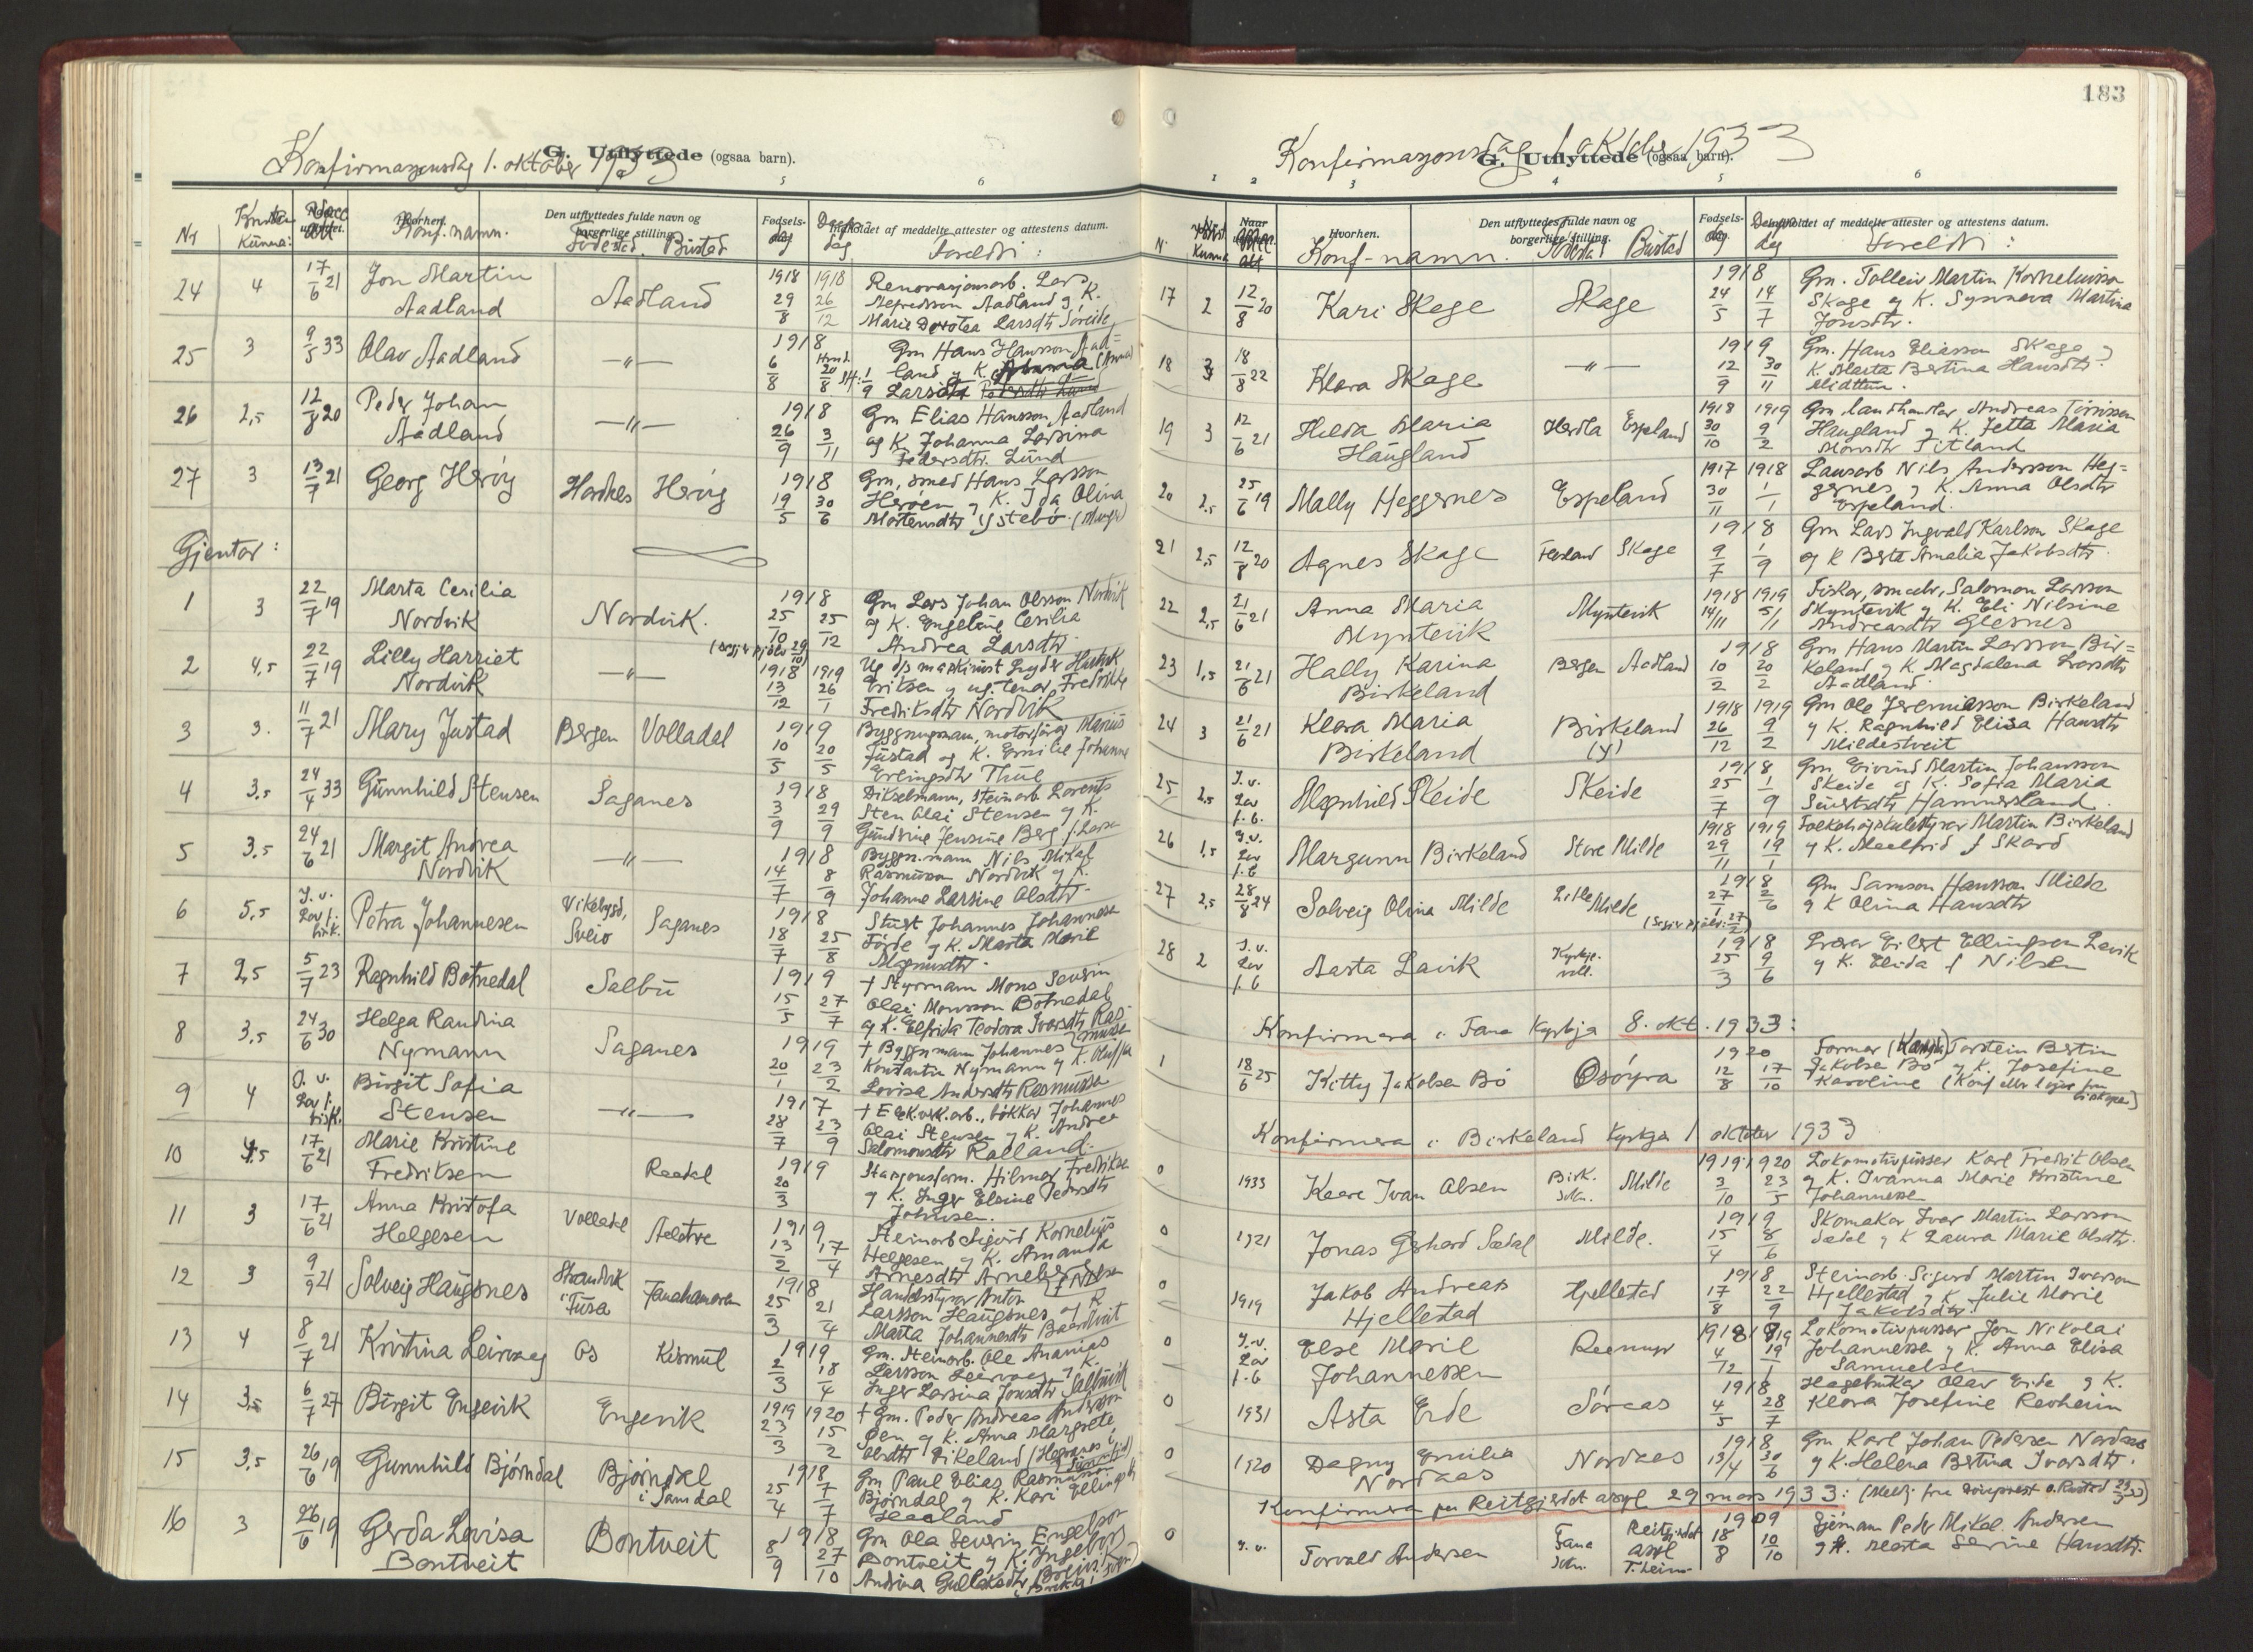 Konfirmasjonsdag 1. oktober 1933
G. Utflyttede (ogsaa barn).
5 6
Nr Kunna: Konf. namn. Den utflyttedes fulde navn og borgerlige stilling. Fødestad Bustad Fødsels- dag Indholdet af meddelte attester og attestens datum. Foreldri:
24 4 17/6 21 Jon Martin Aadland Aadland 1918 29/8 1918 26/12 Renovasjonsarb. Lars
Aadland og K.
Marie Dorotea Larsdtr Søreide
25 3 9/5 33 Olav Aadland —"— 1918 6/8 Gm Hans Hansson Aad=
land og K.
Larsdtr
26 2,5 12/8 20 Peder Johan Aadland —"— 1918 26/9 3/11 Gm Elias Hansson Aadland
og K. Johanna Larsina
Pedersdtr. Lund
27 3 13/7 21 Georg Herøy Hordnes Herøy 1918 19/5 30/6 Gm, smed Hans Larsson
Herøen og K. Ida Olina
Mortensdtr Ystebø
Gjentor:
1 3 22/7 19 Marta Cesilia Nordvik Nordvik. 1918 25/10 25/12 Gm Lars Johan Olsson Nordvik
og K. Engeline Cesilia
Andrea Larsdtr.
2 4,5 22/7 19 Lilly Harriet Nordvik —"— 1918 13/12 1919 26/1 Ug d/s maskinist
Eriksen og ug. Fredrikke
Fredriksdtr Nordvik
3 3. 11/7 21 Mary Justad Bergen Volladal 1919 10/5 20/5 Byggningsmann, Marius
Justad og K. Emilie Johanne
Erlingsdtr Thue
4 3,5 24/4 33 Gunnhild Stensen Saganes 1918 3/9 29/9 Dikselmann, steinarb Lorents
Sten Olai Stensen og K.
Gundvine Jensine Berg f. Larsen
5 3,5 24/6 21 Margit Andrea Nordvik —"— 1918 14/7 8/9 Byggn.mann Nils Mikal
Rasmusson Nordvik og K.
Johanne Larsine Olsdtr.
6 5,5 Petra Johannesen Vikebygd, Sveio Saganes 1918 18/7 25/8 Johannes Johannesen
Førde og K. Marta Marie
Magnusdtr.
7 2,5 5/7 23 Ragnhild Botnedal Salbu 1919 15/5 27/7 † Styrmann Mons Severin
Olai Monsson Botnedal
og K. Elfrida Teodora Ivarsdtr Rasmussen
8 3,5 24/6 30 Helga Randina Nymann Saganes 1919 20/1 23/2 † Byggnmann Johannes
Konstantin Nymann og K.
Lovisa Andersdtr Rasmussen
9 4 Birgit Sofia Stensen —"— 1917 28/7 23/9 bøkkar Johannes
Olai Stensen og K. Andrea
Salomonsdtr Kalland.
10 4,5 17/6 21 Marie Kristine Fredriksen Raadal 1919 20/3 Stasjonsform. Hilmar Fredriksen
og K. Inger Elvine Pedersdtr
Johnsen.
11 3 17/6 21 Anna Kristofa Helgesen Volladal 1919 13/2 17/4 Steinarb Sigurd Kornelius
Helgesen og K. Amanda
Arnesdtr Arneberg
12 3 9/9 21 Solveig Haugsnes Strandvik i Fusa Fanahamaren 1918 25/3 21/4 Handelsstyrar Anton
Larsson Haugsnes og K
Marta Johannesdtr
13 4 8/7 21 Kristina Leirvaag Os Kismul 1919 2/3 18/4 Gm. Steinarb. Ole Ananias
Larsson Leirvaag og K.
Inger Larsina Jonsdtr Salbuvik
14 3,5 6/7 27 Birgit Engevik Engevik 1919 23/3 1920 15/2 † Gm. Peder Andreas Andersson
Øen og K. Anna Margrete
Olsdtr Vikeland
15 3,5 26/6 19 Gunnhild Bjørndal Bjørndal i Samdal 1918 25/4 7/7 Gm Paul Elias Rasmusson
Bjørndal og K. Kari
Hegland
16 3 26/6 19 Gerda Lovisa Bontveit Bontveit 1918 8/9 27/10 Gm Ola Severin Engelson
Bontveit og K. Ingeborg
Andrina Gullaksdtr
183
Konfirmasjonsdag 1 oktober 1933
G. Utflyttede (ogsaa barn).
1 2 3 4 5 6
N. Kunna Naar Hvorhen. Konf-namn. Den utflyttedes fulde navn og borgerlige stilling. Fødestad Bustad Fødsels- dag Indholdet af meddelte attester og attestens datum. Foreldri:
17 2 12/8 20 Kari Skage Skage 1918 24/5 14/7 Gm. Tolleiv Martin Korneliusson
Skage og K. Synneva Martina
Jonsdtr.
18 3 18/8 22 Klara Skage —"— 1919 12/9 30/11 Gm. Hans Eliasson Skage og
K. Marta Bertina Hansdtr.
Midttun.
19 3 12/6 21 Hilda Maria Haugland Herdla Espeland 1918 30/10 1919 9/2 Gm landhandlar Andreas Tørrisson
Haugland og K. Jetta Maria
Monsdtr Titland
20 2,5 25/6 19 Mally Heggernes Espeland 1917 30/11 1918 1/1 Lausarb Nils Andersson Heg=
gernes og K. Anna Olsdtr
Espeland.
21 2,5 12/8 20 Agnes Skage Skage 1918 9/7 1/9 Gm Lars Ingvald Karlson Skage
og K Berta Amalia Jakobsdtr.
22 2,5 21/6 21 Anna Maria Myntevik Myntevik 1918 14/11 1919 5/1 Fisker, smabr, Salomon Larsson
Myntevik og K. Eli Nilsine
Andreasdtr Glesnes
23 1,5 21/6 21 Hally Karina Birkeland Bergen Aadland 1918 10/2 20/2 Gm Hans Martin Larsson Bir=
keland og K. Magdalena Larsdtr
Aadland.
24 3 21/6 21 Klara Maria Birkeland Birkeland (Y) 1918 26/12 1919 9/2 Gm Ole Jeremiasson Birkeland
og K. Ragnhild Elisa Hansdtr
Mildestveit
25 2,5 Magnhild Skeide Skeide 1918 25/7 1/9 Gm Eivind Martin Johansson
Skeide og K. Sofia Maria
Sjurdtr Hammersland.
26 1,5 Margunn Birkeland Store Milde 1918 29/11 1919 19/1 Folkehøgskulestyrar Martin Birkeland
og K. Maalfrid f Skard
27 2,5 28/8 24 Solveig Olina Milde Litle Milde 1918 27/1 2/6 Gm Samson Hansson Milde
og K Olina Hansdtr
28 2 Aasta Lavik Kyrkje- voll. 1918 25/3 9/6 Lærar Eilert Ellingsen Lavik
og K. Elida f Nilsen
Konfirmera i Fana Kyrkja 8. okt. 1933:
1 18/6 25 Kitty Jakobsen Bø Osøyra 1920 12/8 17/10 Formar Torstein Bertin
Jakobsen Bø og K. Josefine
Karoline (Konf etter løyve fra
biskopen)
Konfirmera i Birkeland Kyrkja 1 oktober 1933
0 1933 Kaare Ivan Olsen Birk. Milde 1919 3/10 1920 23/5 Lokomotivpusser Karl Fredrik Olsen
og K. Ivanna Marie Kristine
Johannessen
0 1921 Jonas Gerhard Sædal Milde. 1919 15/4 8/6 Skomakar Ivar Martin Larsson
Sædal og K Laura Marie Olsdtr.
0 1919 Jakob Andreas Hjellestad Hjellestad 1918 17/8 22/9 Steinarb. Sigurd Martin Iverson
Hjellestad og K Julie Marie
Jakobsdtr.
0 Else Marie Johannessen 1918 4/12 1919 19/1 Lokomotivpusser Jon Nikolai
Johannessen og K. Anna Elisa
Samuelsen
0 1931 Asta Eide Søraas 1918 4/5 28/7 Hagebrukar Olav Eide og K.
Klara Josefine Revheim
0 1920 Dagny Emilia Nordaas Nordaas 1918 13/4 30/6 Gm Karl Johan Pedersen Nordaas
og K. Helena Bertina Ivarsdtr.
Konfirmera paa Reitgjerdet asyl 29 mars 1933:
0 Torvald Andersen Fana Reitgjerdet asyl 1909 18/8 10/10 Peder Mikal Andersen
og K. Marta Serine Hansdtr.